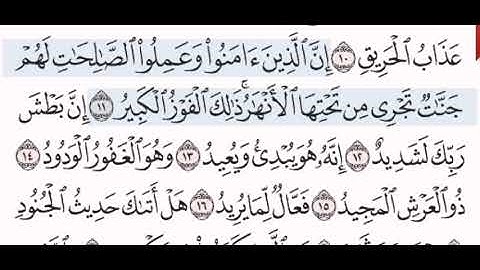 عَذَابُ ٱلْحَرِيقِ ١٠ إِنَّ ٱلَّذِينَ ءَامَنُوا۟ وَعَمِلُوا۟ ٱلصَّٰلِحَٰتِ لَهُمْ
جَنَّٰتٌ تَجْرِى مِن تَحْتِهَا ٱلْأَنْهَٰرُ ۚ ذَٰلِكَ ٱلْفَوْزُ ٱلْكَبِيرُ ١١ إِنَّ بَطْشَ
رَبِّكَ لَشَدِيدٌ ١٢ إِنَّهُۥ هُوَ يُبْدِئُ وَيُعِيدُ ١٣ وَهُوَ ٱلْغَفُورُ ٱلْوَدُودُ ١٤
ذُو ٱلْعَرْشِ ٱلْمَجِيدُ ١٥ فَعَّالٌ لِّمَا يُرِيدُ ١٦ هَلْ أَتَىٰكَ حَدِيثُ ٱلْجُنُودِ